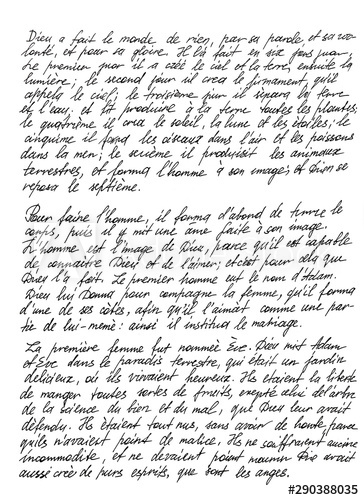 Dieu a fait le monde de rien, par sa parole, et sa vo-
lonté, et pour sa gloire. Il l'a fait en six jours.
Le premier jour il a créé le ciel et la terre, ensuite la
lumière; le second jour il crea le firmament, qu'il
appela le ciel; le troisième jour il sépara la terre
et l'eau, et fit produire à la terre toutes les plantes;
le quatrième il crea le soleil, la lune et les étoiles; le
cinquième il forma les oiseaux dans l'air et les poissons
dans la mer; le sixième il produisit les animaux
terrestres, et forma l'homme à son image; et Dieu se
reposa le septième.
Pour faire l'homme, il forma d'abord de terre le
corps, puis il y mit une ame faite à son image.
L'homme est l'image de Dieu, parce qu'il est capable
de connaître Dieu et de l'aimer; et c'est pour cela que
Dieu l'a fait. Le premier homme eut le nom d'Adam.
Dieu lui donna pour compagne la femme, qu'il forma
d'une de ses côtes, afin qu'il l'aimât comme une par-
tie de lui-même: ainsi il institua le mariage.
La première femme fut nommée Eve. Dieu mit Adam
et Eve dans le paradis terrestre, qui était un jardin
délicieux, où ils vivaient heureux. Ils étaient la liberté
de manger toutes sortes de fruits, excepté celui de l'arbre
de la science du bien et du mal, que Dieu leur avait
défendu. Ils étaient tout nus, sans avoir de honte, parce
qu'ils n'avaient point de malice. Ils ne souffraient aucune
incommodité, et ne devaient point mourir. Dieu avait
aussi créé de purs esprits, que sont les anges.
#290388035